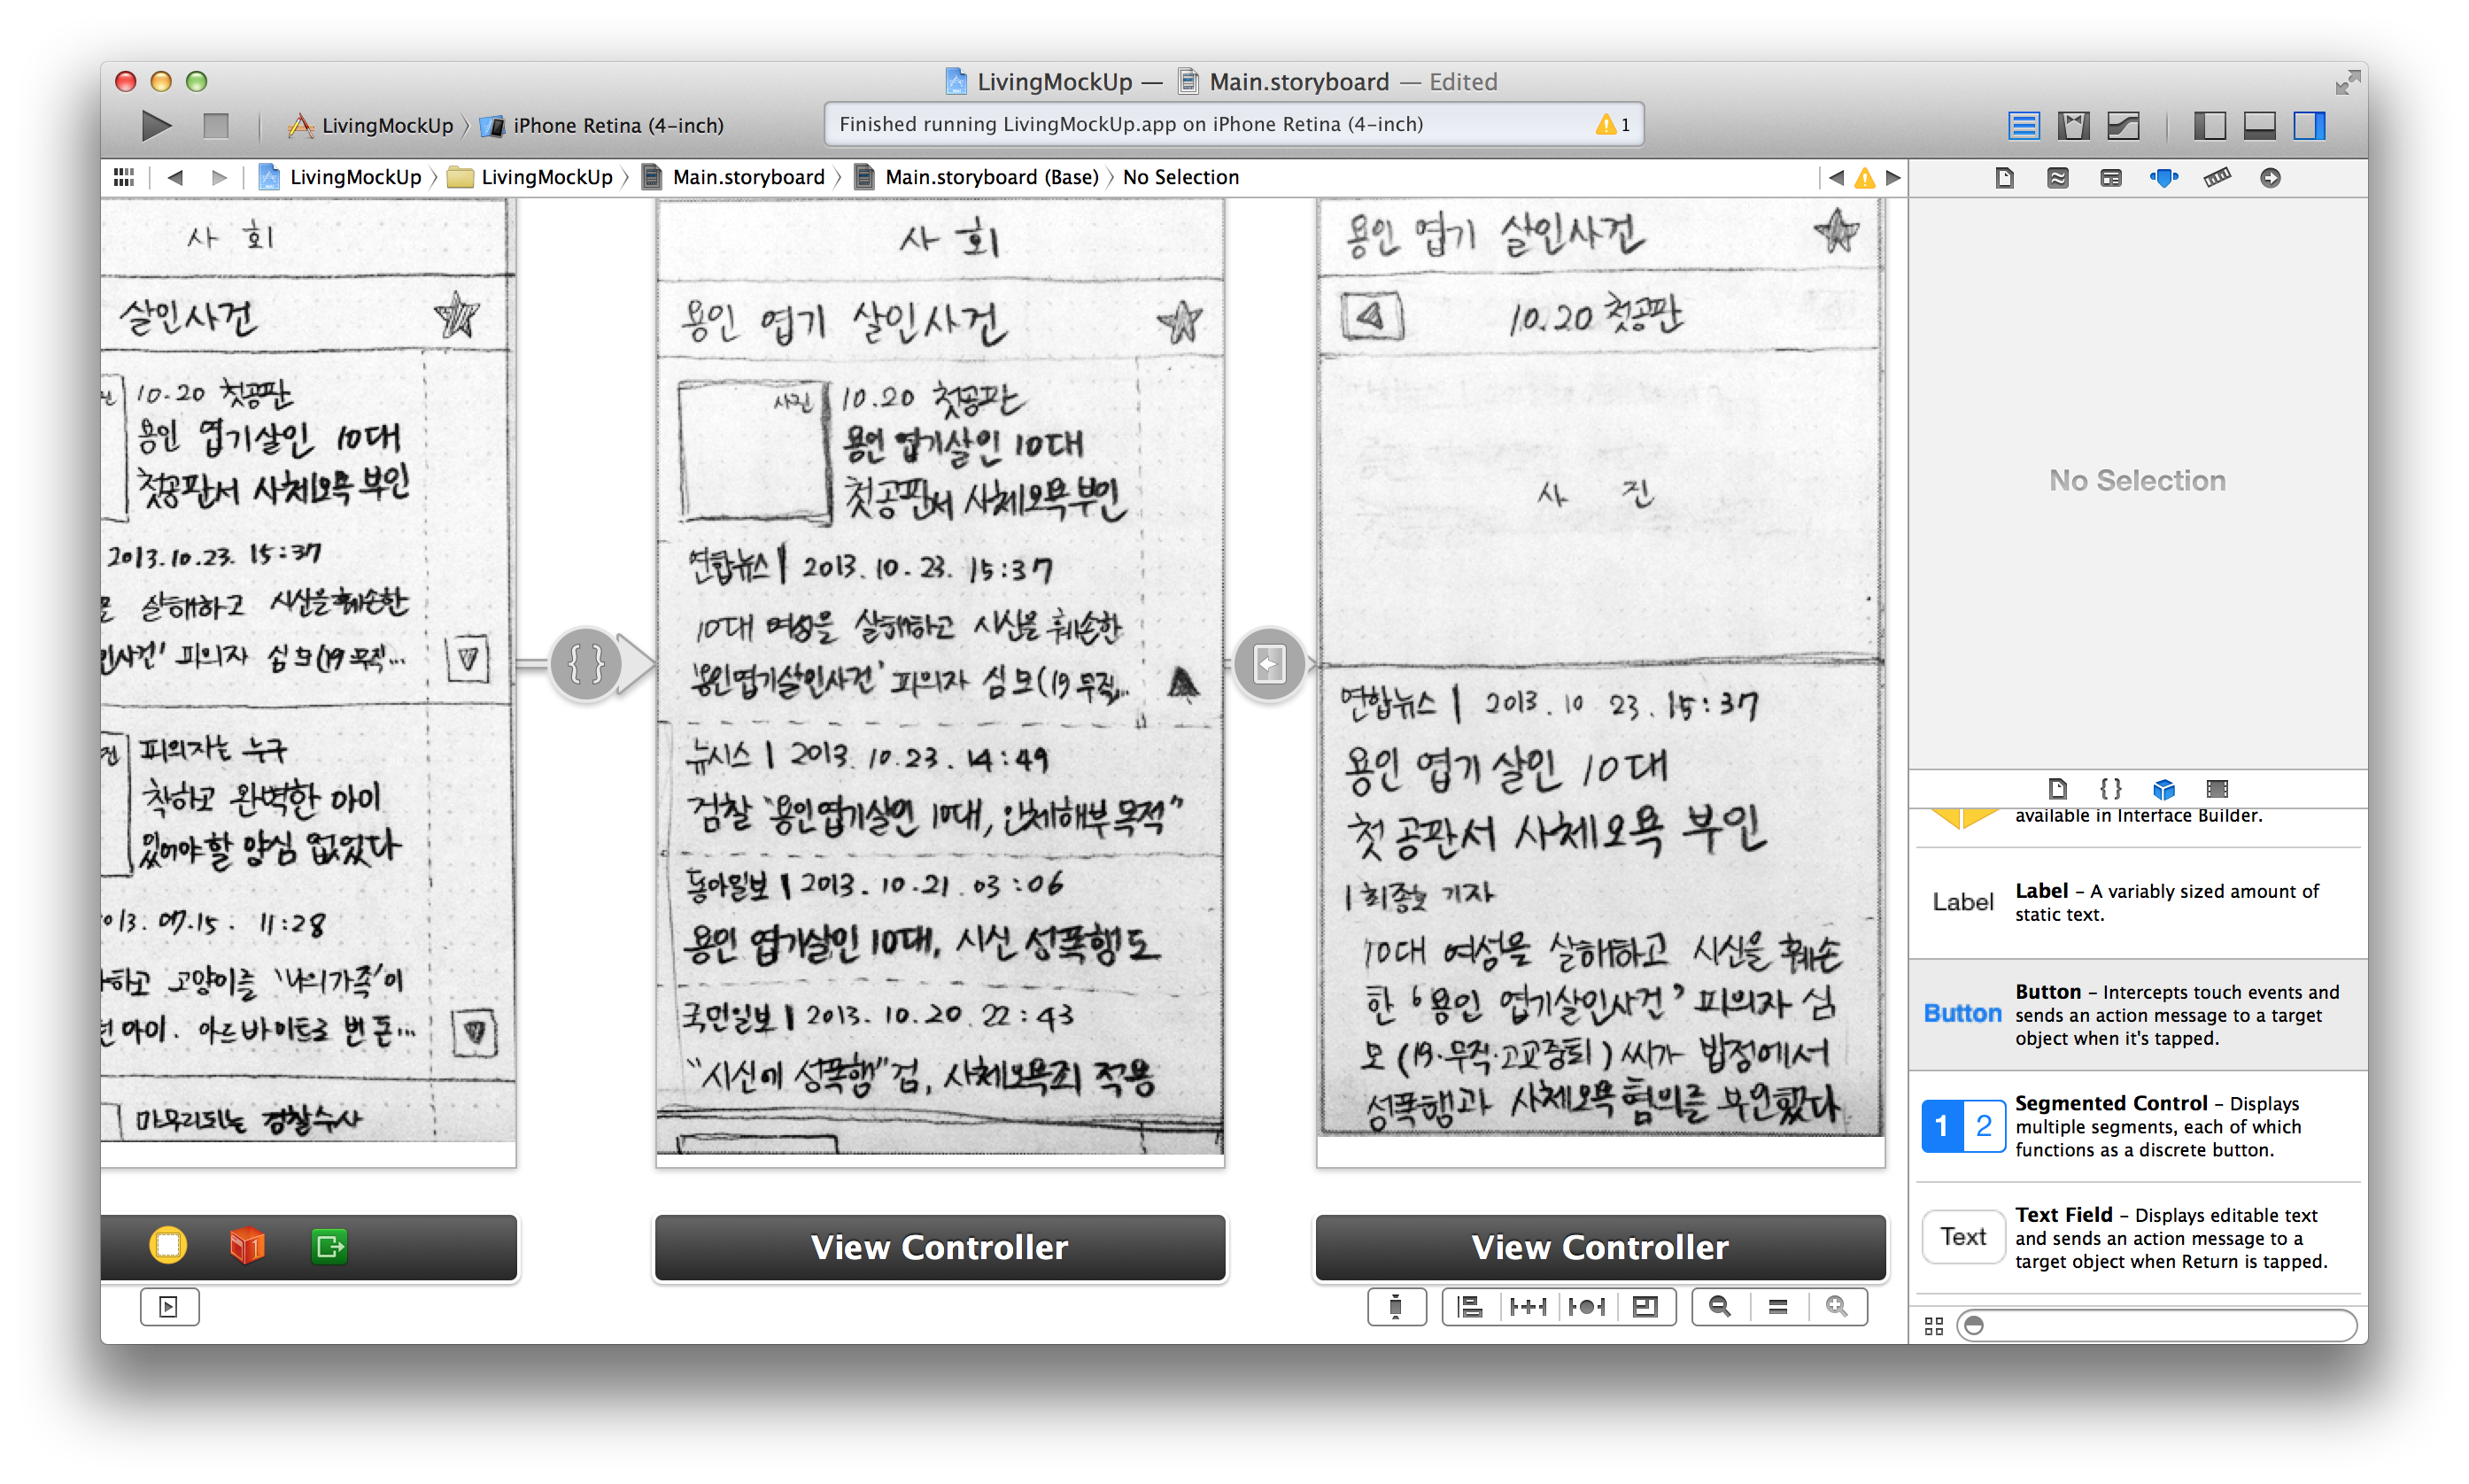 LivingMockUp — Main.storyboard — Edited
LivingMockUp 〉 iPhone Retina (4-inch)
Finished running LivingMockUp.app on iPhone Retina (4-inch)
1
LivingMockUp 〉 LivingMockUp 〉 Main.storyboard 〉 Main.storyboard (Base) 〉 No Selection
사 회
살인사건
10.20 첫공판
용인 엽기살인 10대
첫공판서 사체오욕 부인
2013.10.23. 15:37
살해하고 시신을 훼손한
인사건' 피의자 심 모(19 무직...
피의자는 누구
착하고 완벽한 아이
있어야 할 양심 없었다
013. 07.15. 11:28
하고 고양이를 '나의가족'이
아이. 아르바이트로 번 돈...
마무리되는 경찰수사
사 회
용인 엽기 살인사건
사진
10.20 첫공판
용인 엽기살인 10대
첫공판서 사체오욕 부인
연합뉴스 | 2013.10.23. 15:37
10대 여성을 살해하고 시신을 훼손한
'용인엽기살인사건' 피의자 심 모(19 무직...
뉴시스 | 2013.10.23. 14:49
검찰 "용인엽기살인 10대, 인체해부 목적"
동아일보 | 2013.10.21. 03:06
용인 엽기살인 10대, 시신 성폭행도
국민일보 | 2013.10.20. 22:43
"시신에 성폭행" 검, 사체오욕죄 적용
용인 엽기 살인사건
10.20 첫공판
사 진
연합뉴스 | 2013.10 23. 15:37
용인 엽기 살인 10대
첫 공판서 사체오욕 부인
| 최종호 기자
10대 여성을 살해하고 시신을 훼손
한 '용인 엽기살인사건' 피의자 심
모(19·무직·고교중퇴)씨가 법정에서
성폭행과 사체오욕 혐의를 부인했다
View Controller
View Controller
No Selection
available in Interface Builder.
Label
Label – A variably sized amount of
static text.
Button
Button – Intercepts touch events and
sends an action message to a target
object when it's tapped.
1 2
Segmented Control – Displays
multiple segments, each of which
functions as a discrete button.
Text
Text Field – Displays editable text
and sends an action message to a
target object when Return is tapped.